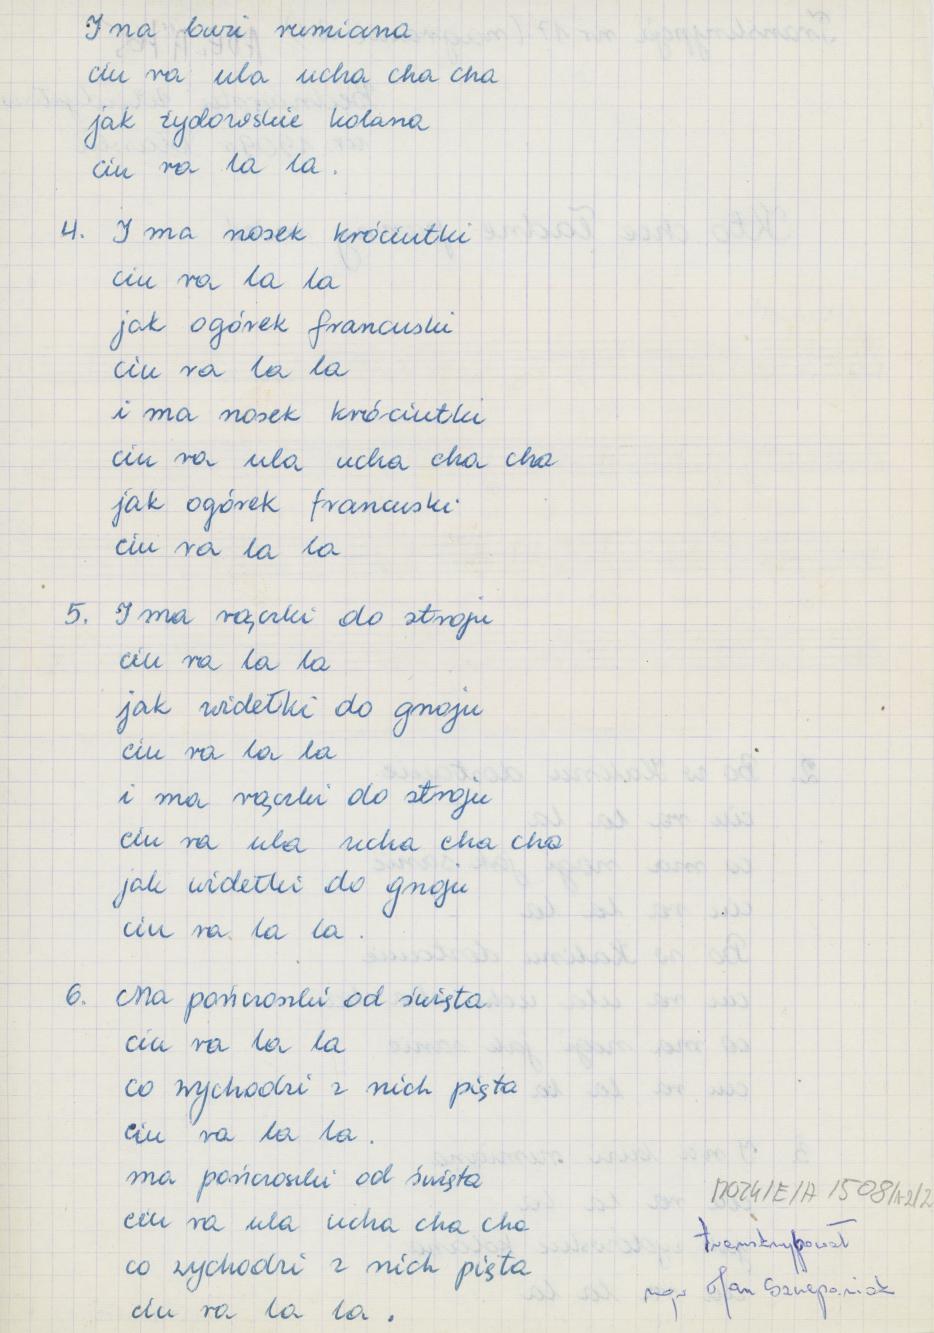 I na buzi rumiana
ciu ra ula ucha cha cha
jak żydowskie kolana
ciu ra la la.
4. I ma nosek króciutki
ciu ra la la
jak ogórek francuski
ciu ra la la
i ma nosek króciutki
ciu ra ula ucha cha cha
jak ogórek francuski
ciu ra la la
5. I ma rączki do stroju
ciu ra la la
jak widełki do gnoju
ciu ra la la
i ma rączki do stroju
ciu ra ula ucha cha cha
jak widełki do gnoju
ciu ra la la.
6. Ma pończoszki od święta
ciu ra la la
co wychodzi z nich pięta
ciu ra la la.
ma pończoszki od święta
ciu ra ula ucha cha cha
co wychodzi z nich pięta
ciu ra la la.
1508/A2/2
transkrybował
mgr Jan Szczepaniak